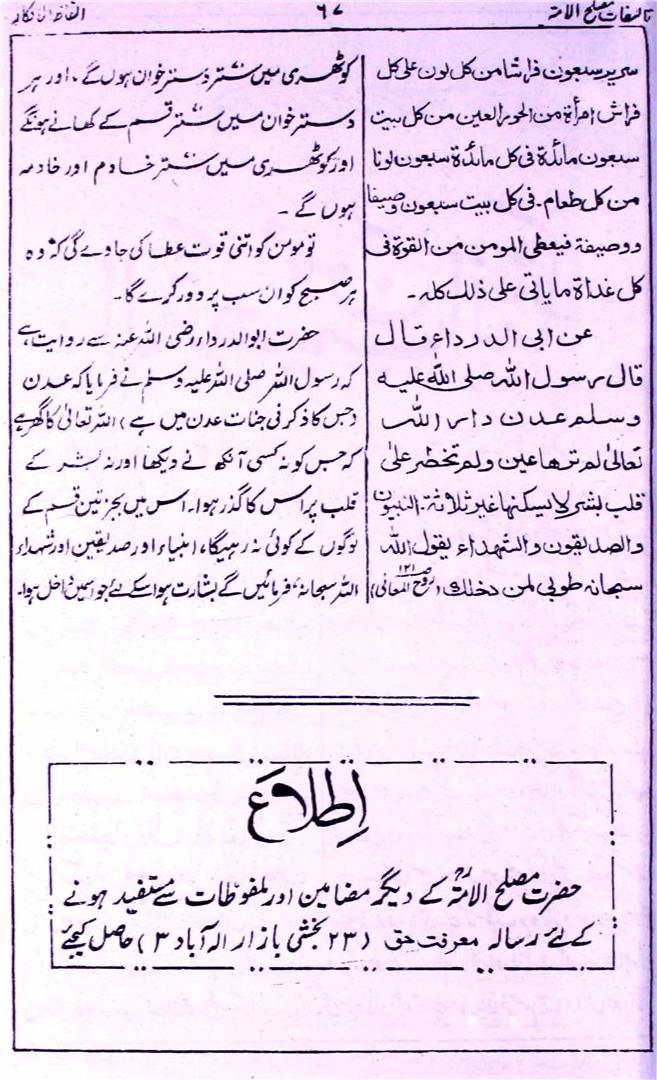 تالیفات مصلح الامۃ
۶۷
الفاظ الافکار
سریر سبعون فراشا من کل لون علی کل
فراش امرأۃ من الحور العین من کل بیت
سبعون مائدۃ فی کل مائدۃ سبعون لونا
من کل طعام۔ فی کل بیت سبعون وصیفا
ووصیفۃ فیعطی المومن من القوۃ فی
کل غداۃ ما یاتی علی ذلک کلہ۔
عن ابی الدرداء قال
قال رسول اللہ صلی اللہ علیہ
وسلم عدن دار اللہ
تعالیٰ لم ترھا عین ولم تخطر علیٰ
قلب بشر لا یسکنھا غیر ثلاثۃ۔ النبیون
والصدیقون والشھداء یقول اللہ
سبحانہ طوبی لمن دخلک (روح المعانی ص۱۲۱)
کوٹھری میں ستر دسترخوان ہوں گے، اور ہر
دسترخوان میں ستر قسم کے کھانے ہونگے
اور کوٹھری میں ستر خادم اور خادمہ
ہوں گے۔
تو مومن کو اتنی قوت عطا کی جاوے گی کہ وہ
ہر صبح کو ان سب پر دور کرے گا۔
حضرت ابوالدرداء رضی اللہ عنہ سے روایت ہے
کہ رسول اللہ صلی اللہ علیہ وسلم نے فرمایا کہ عدن
(جس کا ذکر فی جنات عدن میں ہے) اللہ تعالیٰ کا گھر ہے
کہ جس کو نہ کسی آنکھ نے دیکھا اور نہ بشر کے
قلب پر اس کا گذر ہوا۔ اس میں بجز تین قسم کے
لوگوں کے کوئی نہ رہیگا، انبیاء اور صدیقین اور شہداء
اللہ سبحانہ، فرمائیں گے بشارت ہو اسکے لئے جو اسمیں داخل ہوا۔
اطلاع
حضرت مصلح الامۃؒ کے دیگر مضامین اور ملفوظات سے مستفید ہونے
کے لئے رسالہ معرفت حق (۲۳ بخشی بازار الہ آباد ۳) حاصل کیجئے